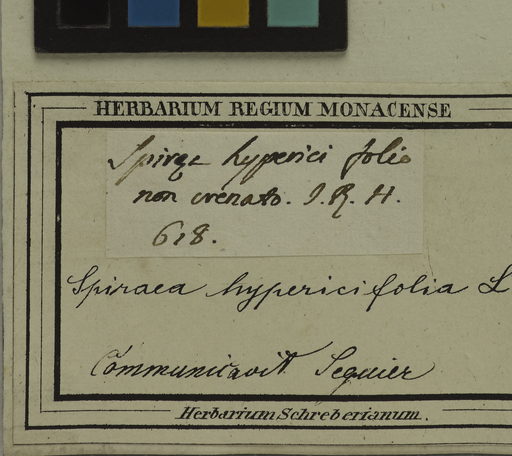 HERBARIUM REGIUM MONACENSE
Spiræa hyperici folio
non crenato. I. R. H.
618.
Spiraea hypericifolia L
Communicavit Seguier
Herbarium Schreberianum.